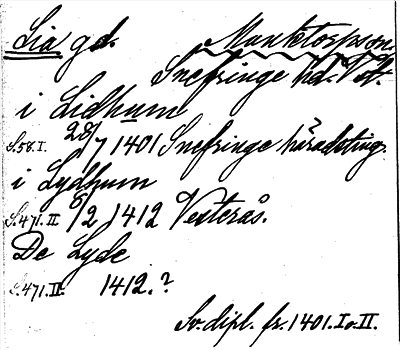 Lia gd. Munktorpson.
Snefringe hd. Vstl.
i Lidhum
S.58.I. 28/7 1401 Snefringe häradsting.
i Lydhum
S.471.II 5/2 1412 Vesterås.
De Lyde
S.471.II. 1412.?
Sv. dipl. fr. 1401. I o. II.